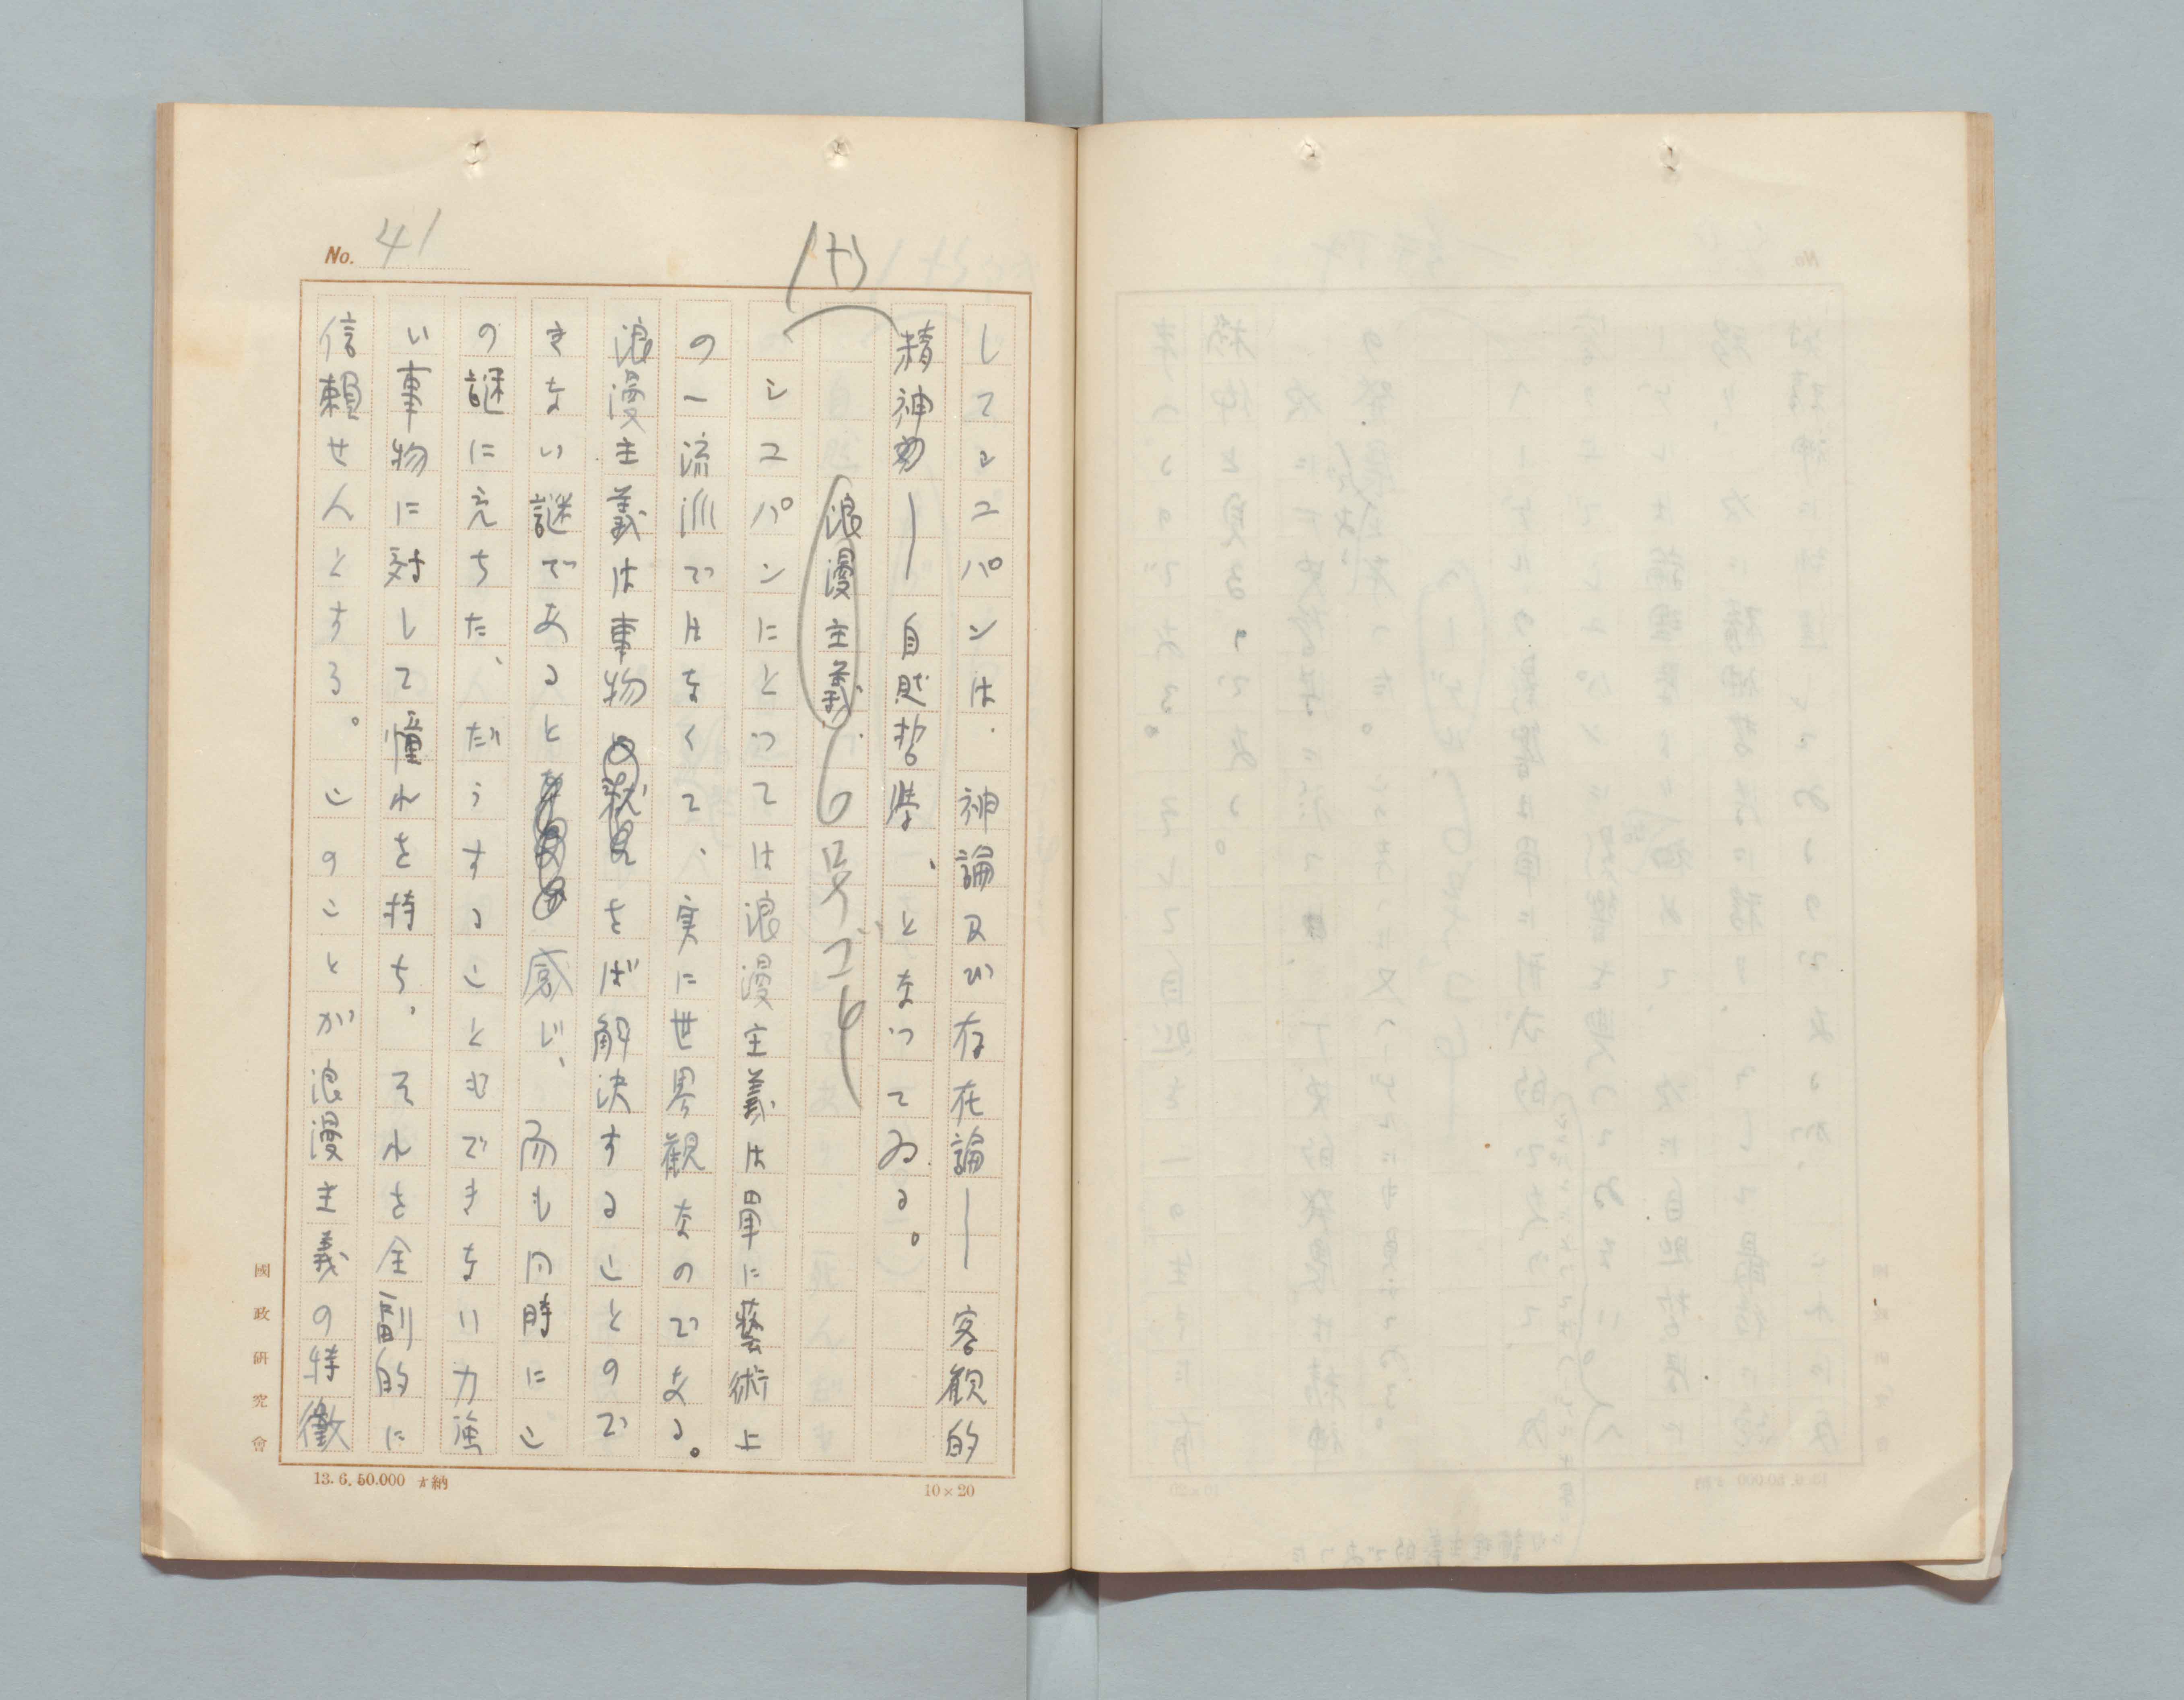 No. 41
してシユパンは、神論及び存在論――客観的
精神論――自然哲学、となつてゐる。
浪漫主義 6号ゴ
シユパンにとつては浪漫主義は単に藝術上
の一流派ではなくて、実に世界観なのである。
浪漫主義は事物をば解決することので
きない謎であると感じ、而も同時にこ
の謎に充ちた、だうすることもできない力強
い事物に対して憧れを持ち、それを全副的に
信頼せんとする。このことが浪漫主義の特徴
國政研究會
13.6.50.000 納
10×20